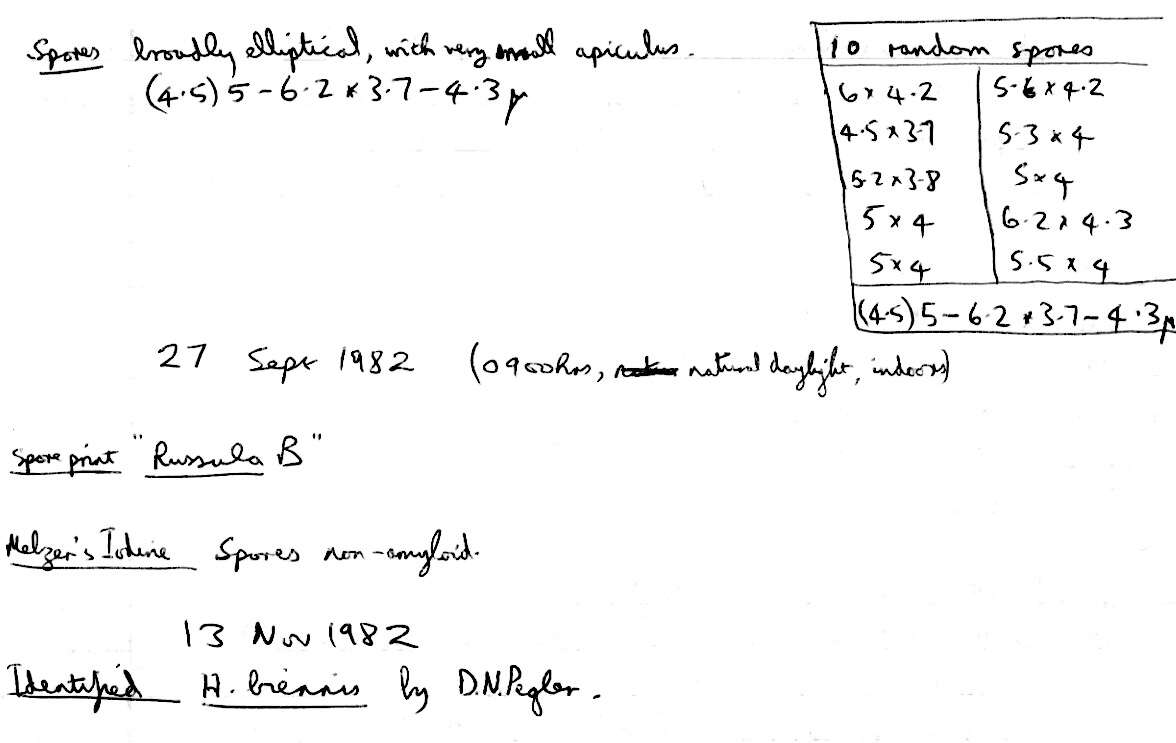 Spores broadly elliptical, with very small apiculus.
(4.5) 5-6.2 x 3.7-4.3 μ
10 random spores
6 x 4.2 5.6 x 4.2
4.5 x 3.7 5.3 x 4
5.2 x 3.8 5 x 4
5 x 4 6.2 x 4.3
5 x 4 5.5 x 4
(4.5) 5-6.2 x 3.7-4.3 μ
27 Sept 1982 (0900hrs, natural daylight, indoors)
Spore print "Russula B"
Melzer's Iodine Spores non-amyloid.
13 Nov 1982
Identified H. biennis by D.N.Pegler.